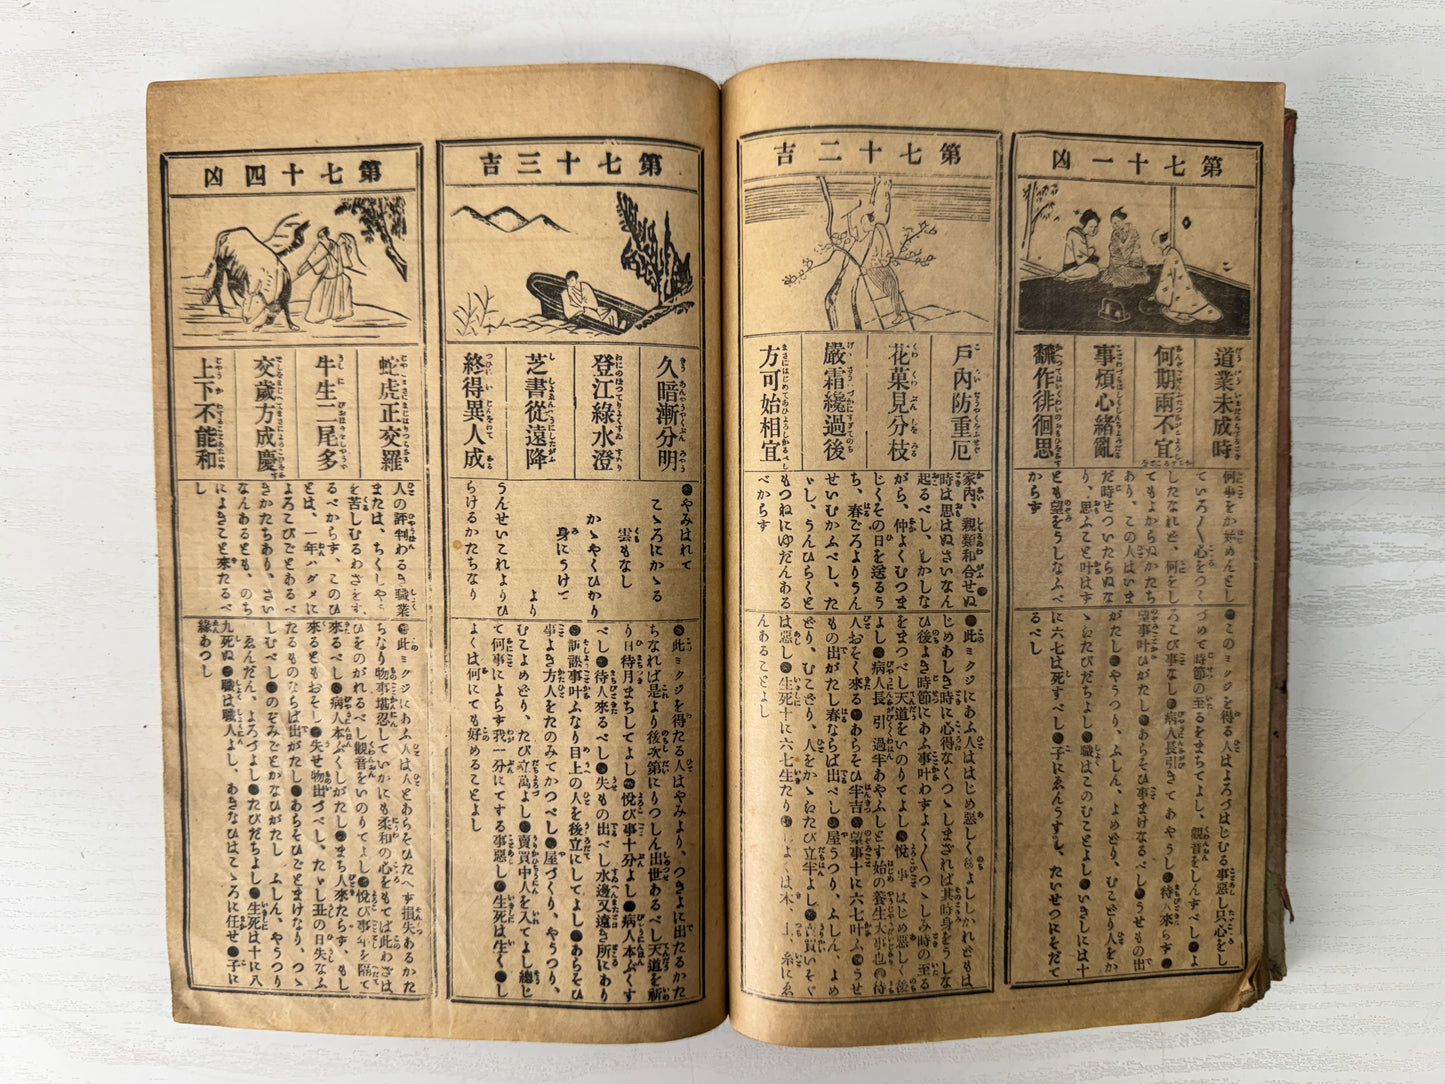 第七十一凶
道業未成時
何期兩不宜
事煩心緒亂
翻作徘徊思
何事をか始めんとし
ていろ〳〵心をつく
したなれど、何をし
てもよからぬかたち
あり、この人はいま
だ時せついたらぬな
り、思ふこと叶はす
とも望をうしなふべ
からず
●このミクジを得る人はよろづはじむる事惡し只心をし
づめて時節の至るをまちてよし、觀音をしんすべし●よ
ろこび事なし●病人長引きてあやうし●待人來らず●
望事叶がたし●あらそひ事まけなるべし●うせもの出
がたし●やうつり、ふしん、よめどり、むこどり人をか
ゝゑたびだちよし●職はこのむことよし●いきしには十
に六七は死すべし●子にゑんうすし、たいせつにそだて
るべし
第七十二吉
戸內防重厄
花菓見分枝
嚴霜纔過後
方可始相宜
家內、親類和合せぬ
時は思はぬさいなん
起るべし、しかしな
がら、仲よくむつま
じくその日を送るう
ち、春ごろよりうん
せいむかふべし、た
ゞし、うんひらくと
もつねにゆだんある
べからす
●此ミクジにあふ人ははじめ惡しく後よししかれどもは
じめあしき時に心得なくつゝしまざれば其時身をうしな
ひ後よき時節にあふ事叶わずよく〳〵つゝしみ時の至る
をまつべし天道をいのりてよし●悅事はじめ惡しく後
よし●病人長引過半あやふしとす始の養生大事也●待
人おそく來る●あらそひ半吉●望事十に六七叶ふ●うせ
もの出がたし春ならば出べし●屋うつり、ふしん、よめ
どり、むこどり、人をかゝゑたび立半よし●賣買いそぐ
は惡し●生死十に六七生たり
んあることよし
第七十三吉
久暗漸分明
登江綠水澄
芝書從遠降
終得異人成
●やみはれて
こゝろにかゝる
雲もなし
かゞやくひかり
身にうけて
より
うんせいこれよりひ
らけるかたちなり
●此ミクジを得たる人はやみより、つきよに出たるかた
ちなれば是より後次第にりつしん出世あるべし天道を祈
り日待月まちしてよし●悅び事十分よし●病人本ぷくす
べし●待人來るべし●失もの出べし水邊又遠き所にあり
●訴訟事叶ふなり目上の人を後立にしてよし●あらそひ
事よき方人をたのみてかつべし●屋づくり、やうつり、
むこよめどり、たび立萬よし●賣買中人を入てよし總じ
て何事によらす我一分にてする事惡し●生死は生く●し
よくは何にても好めることよし
第七十四凶
蛇虎正交羅
牛生二尾多
交歲方成慶
上下不能和
人の評判わるき職業
または、ちくしやう
を苦しむるわざをす
るべからず、このひ
とは、一年ハダメに
よろこびごとあるべ
きかたちあり、さい
なんあるとも、のち
によきこと來たるべ
し
●此ミクジにあふ人は人とあらそひたへず損失あるかた
ちなり物事堪忍していかにも柔和の心をもてば此わざは
ひをのがれるべし觀音をいのりてよし●悅び事年を隔て
來るべし●病人本ぷくしがたし●まち人來たらす、もし
來るともおそし●失せ物出づべし、たゞし丑の日失なふ
たるものならば出がたし●あらそひごとまけなり、つゝ
しむべし●のぞみごとかなひがたし　ふしん、やうつり
ゑんだん、よろづよし●たびだちよし●生死は十に八
九死ぬ●職は職人よし、あきなひはこゝろに任せ●子に
緣あつし